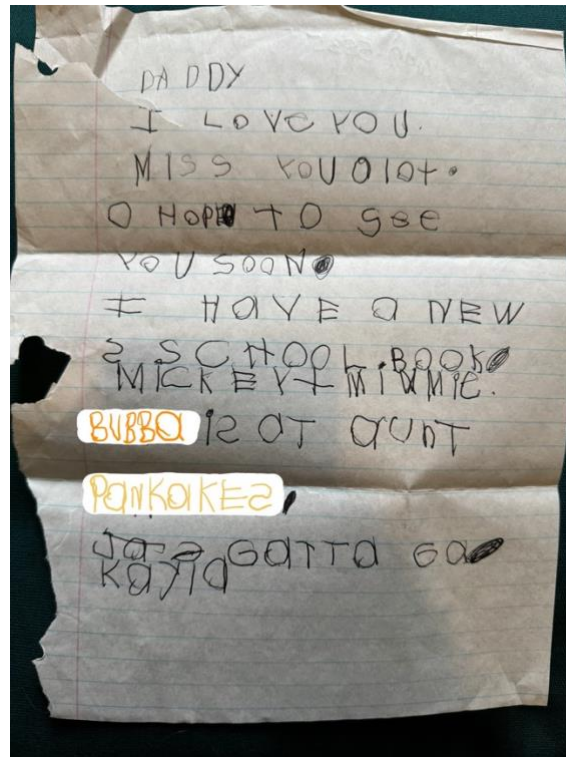 DADDY
I LOVE YOU.
MISS YOU a lot.
O HOPE TO see
YOU SOON
I HaVE a NEW
S SCHOOL BOOK
MICKEY + MINNIE.
BUBBa IS aT aUNT
PaNKaKES
GaTTa Ga
KaYla